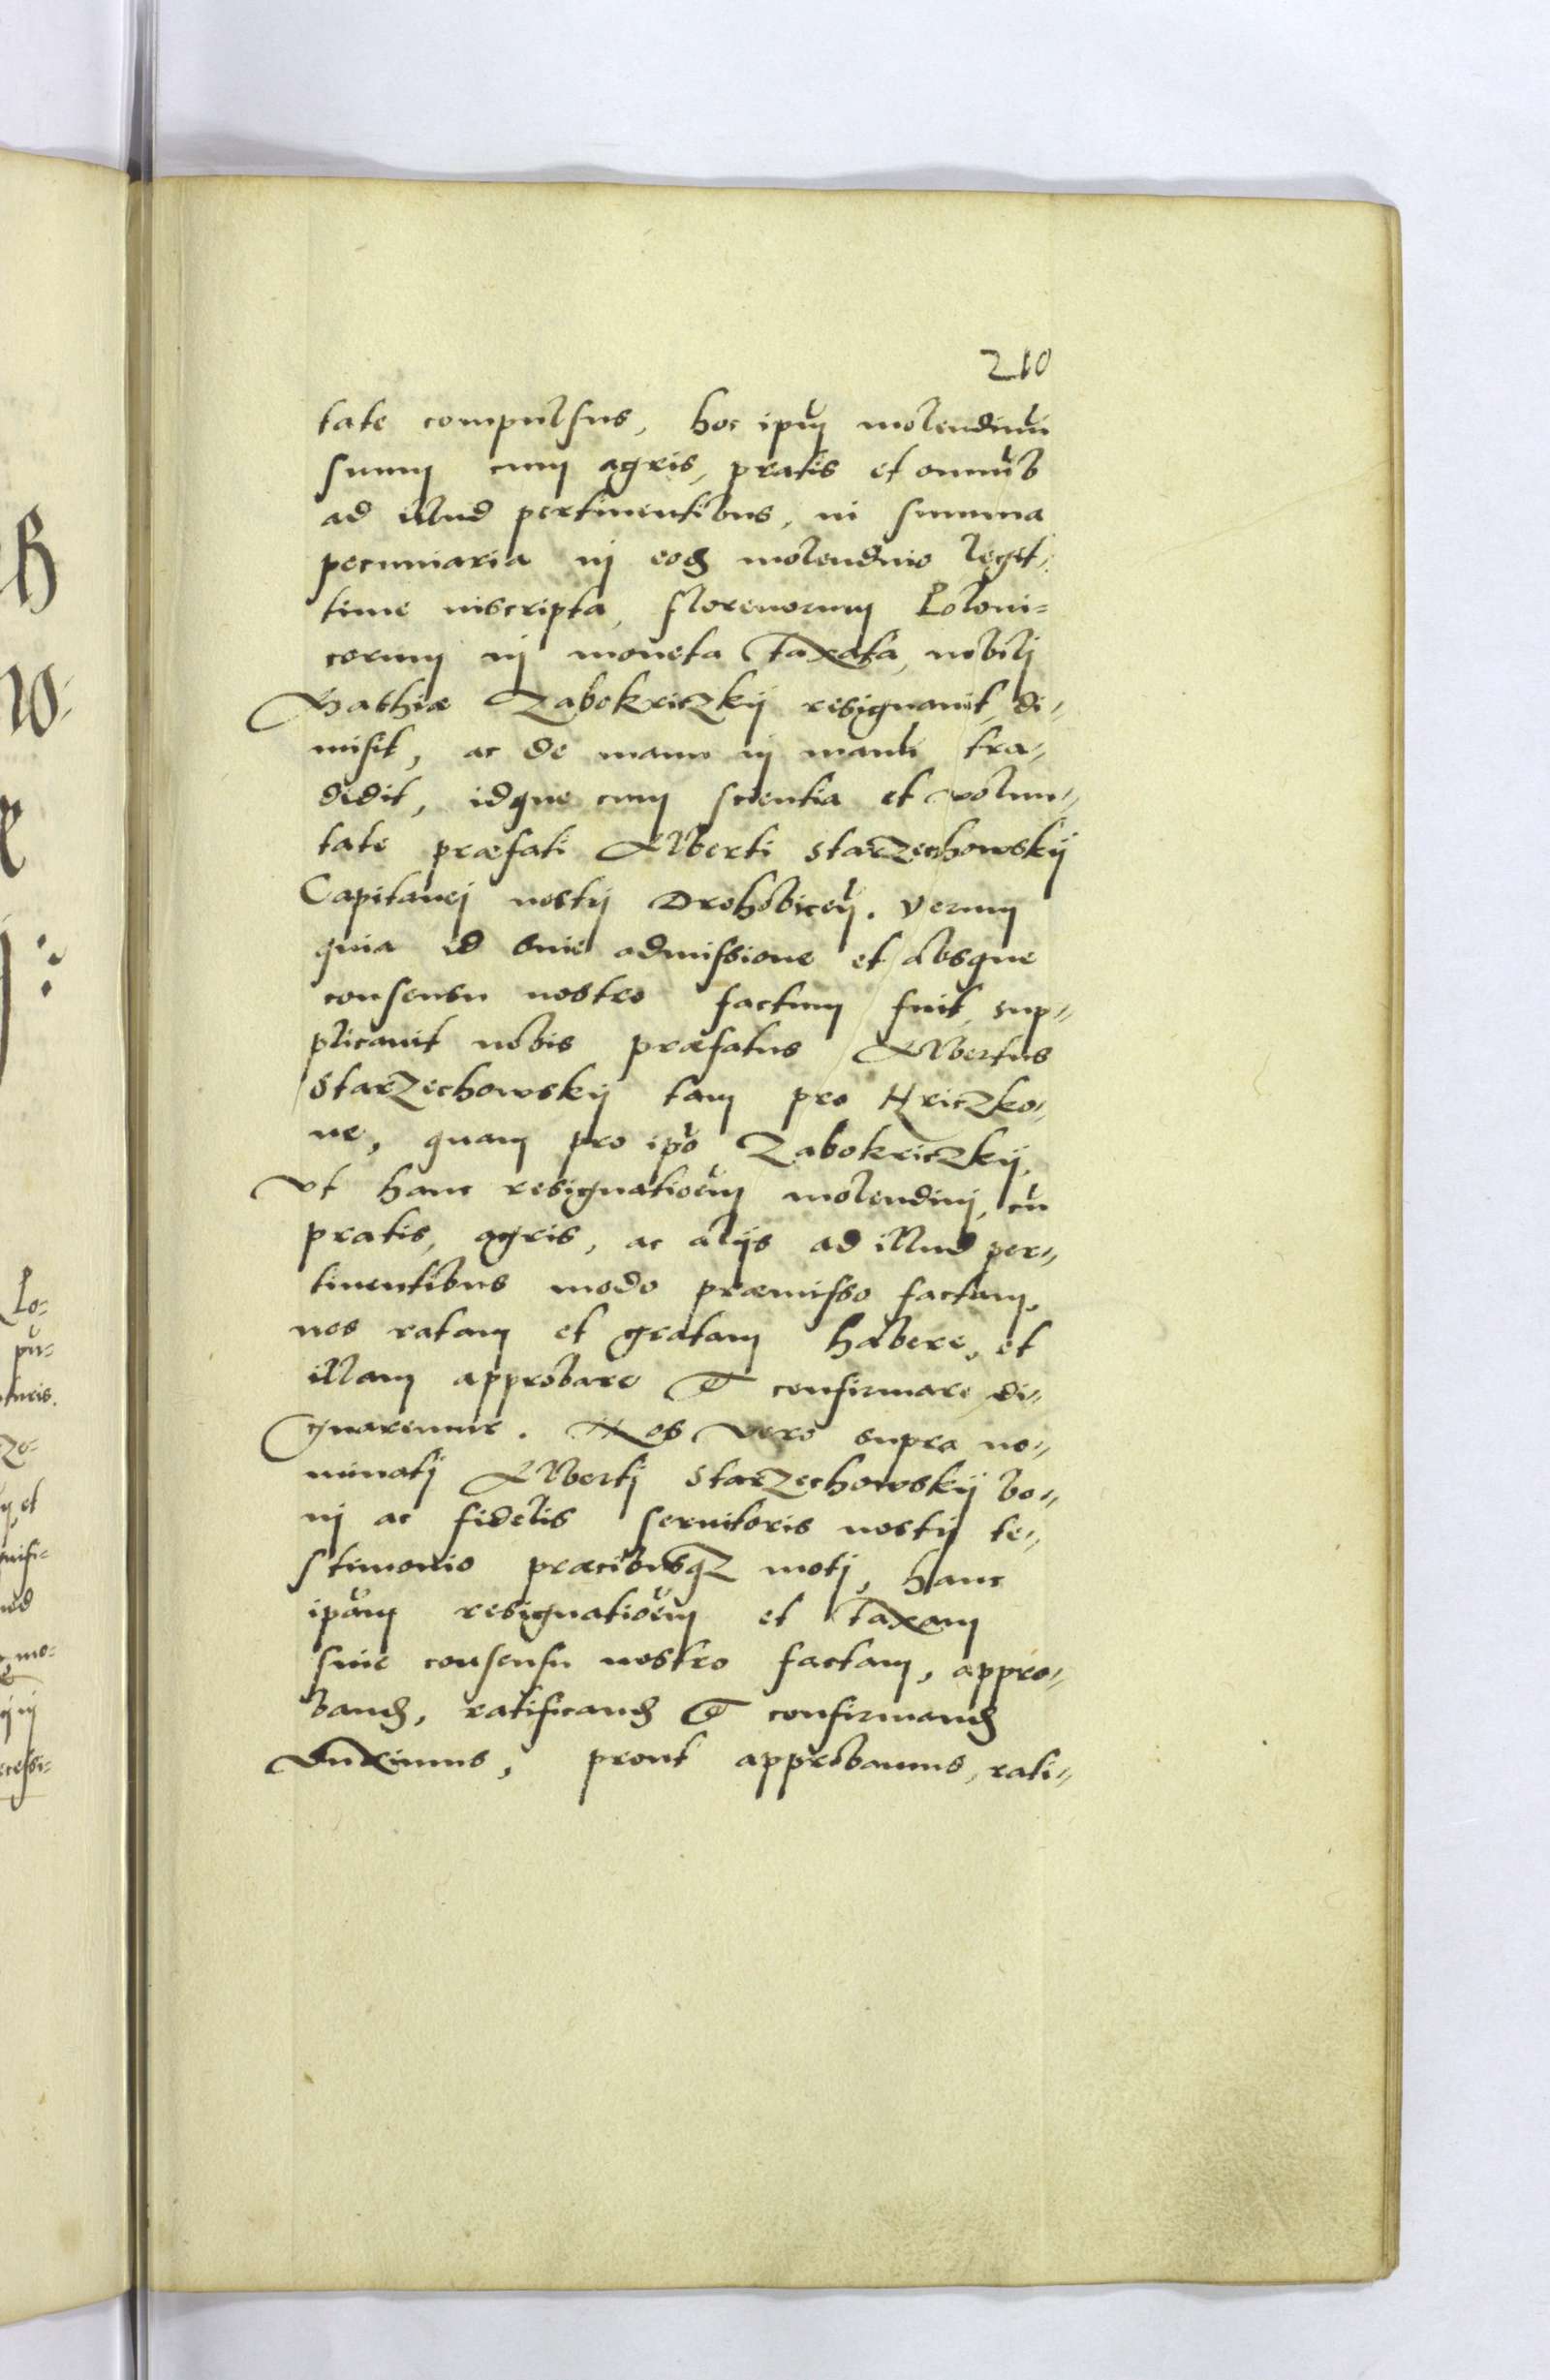 210
tate compulsus, hoc ipũm molendinũ
suum cum agris, pratis et omnĩb
ad illud pertinentibus, in summa
pecuniaria in eodẽ molendino legit-
time inscripta, florenorum Poloni-
corum in moneta taxata, nobili
Vashiæ Zabokriczkij resignauit, di-
misit, ac de manu in manũ tra-
didit, idque cum scientia et volun-
tate præfati Alberti Starzechowskij
Capitanei nostrj Drohobiceñ. Verum
quia id sine admissione et absque
consensu nostro factum fuit, sup-
plicauit nobis præfatus Albertus
Starzechowskij tam pro Hriczko-
ne, quam pro ipõ Zabokriczkij,
vt hanc resignatioẽm molendinj, cũ
pratis, agris, ac alijs ad illud per-
tinentibus modo præmisso factam,
nos ratam et gratam habere, et
illam approbare et confirmare di-
gnaremur. Nos vero supra no-
minatj Albertj Starzechowskij bo-
nj ac fidelis seruitoris nostrj te-
stimonio præcibusqz motj, hanc
ipãm resignatioẽm et taxam
sine consensu nostro factam, appro-
band, ratificand et confirmand
duximus, prout approbamus, rati-